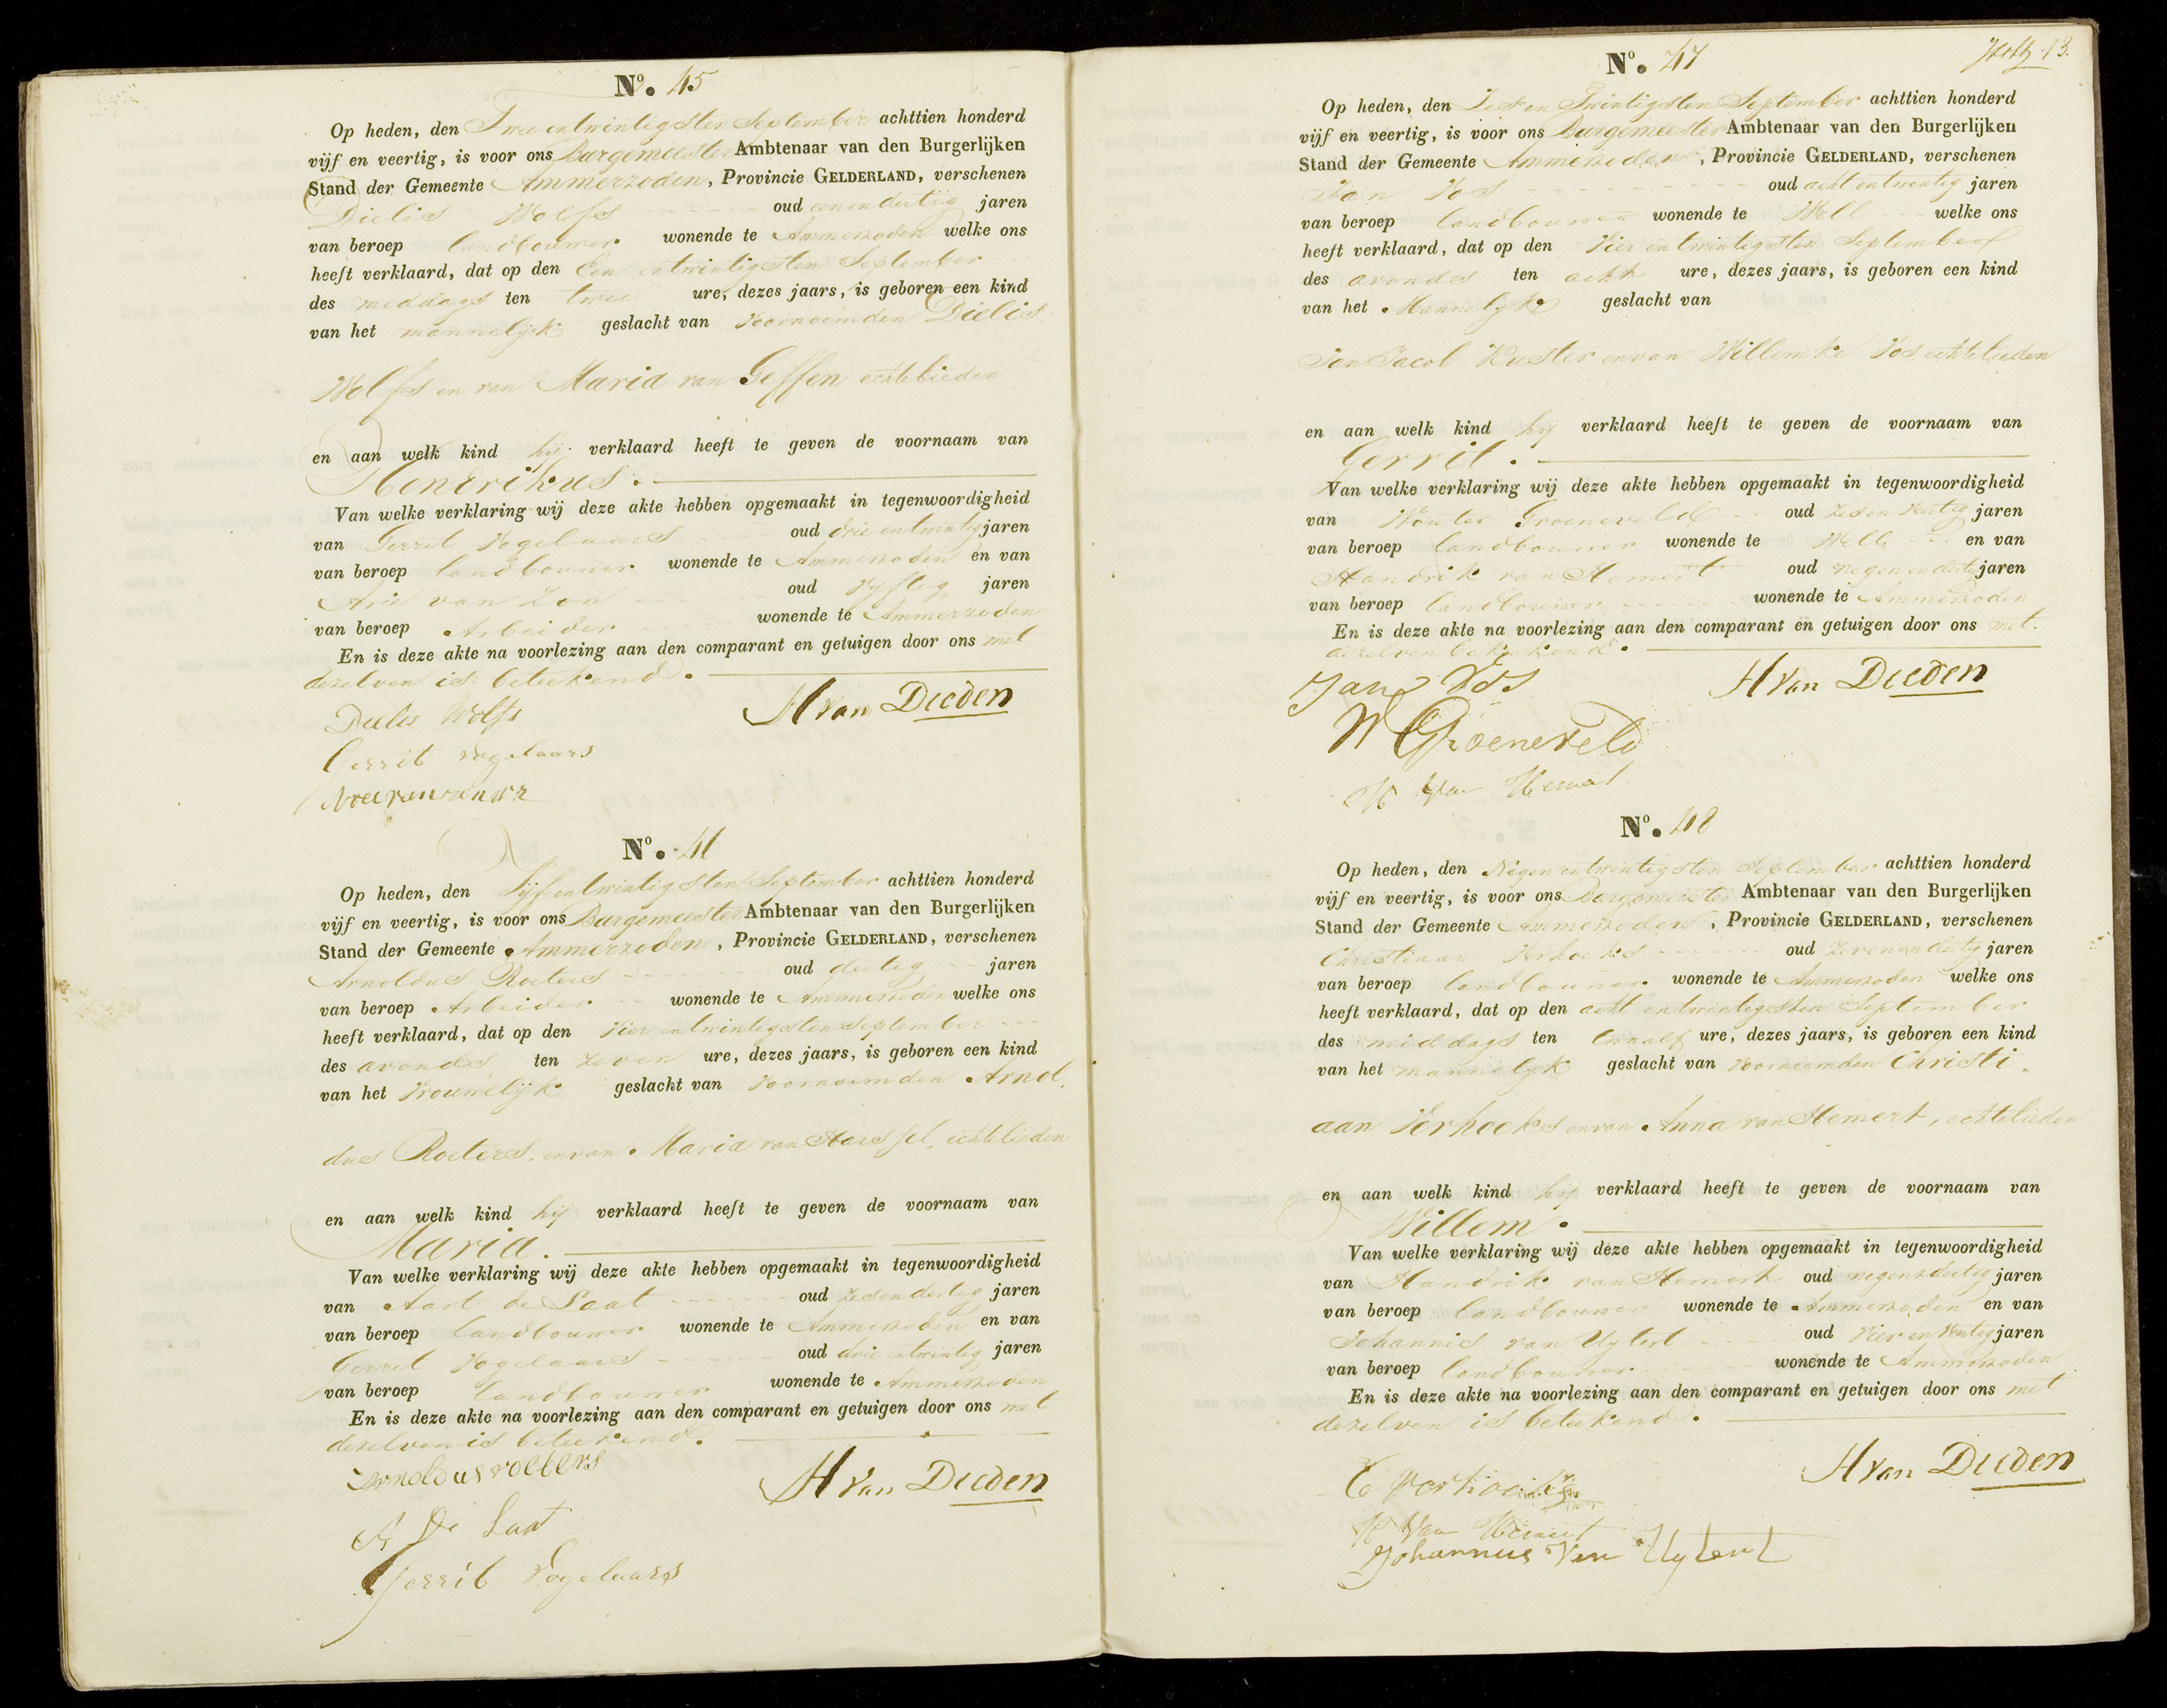 No. 45
Op heden, den Twee en twintigsten September achttien honderd
vijf en veertig, is voor ons Burgemeester Ambtenaar van den Burgerlijken
Stand der Gemeente Ammerzoden, Provincie GELDERLAND, verschenen
Dielis Wolfs oud een en dertig jaren
van beroep landbouwer wonende te Ammerzoden welke ons
heeft verklaard, dat op den Een en twintigsten September
des middags ten twee ure, dezes jaars, is geboren een kind
van het mannelijk geslacht van Voornoemden Dielis
Wolfs en van Maria van Geffen echtelieden
en aan welk kind hij verklaard heeft te geven de voornaam van
Hendrikus.
Van welke verklaring wij deze akte hebben opgemaakt in tegenwoordigheid
van Gerrit Vogelaars oud drie en twintig jaren
van beroep landbouwer wonende te Ammerzoden en van
Arie van Zon oud Vyftig jaren
van beroep Arbeider wonende te Ammerzoden
En is deze akte na voorlezing aan den comparant en getuigen door ons met
dezelven is beteekend.
Dielis Wolfs
H van Dieden
Gerrit Vogelaars
No. 46
Op heden, den Vijf en twintigsten September achttien honderd
vijf en veertig, is voor ons Burgemeester Ambtenaar van den Burgerlijken
Stand der Gemeente Ammerzoden, Provincie GELDERLAND, verschenen
Arnoldus Roeters oud dertig jaren
van beroep Arbeider wonende te Ammerzoden welke ons
heeft verklaard, dat op den Vier en twintigsten September
des avonds ten zeven ure, dezes jaars, is geboren een kind
van het Vrouwelijk geslacht van Voornoemden Arnol
dus Roeters, en van Maria van Haessel, echtelieden
en aan welk kind hij verklaard heeft te geven de voornaam van
Maria.
Van welke verklaring wij deze akte hebben opgemaakt in tegenwoordigheid
van Aart de Laat oud zes en dertig jaren
van beroep landbouwer wonende te Ammerzoden en van
Gerrit Vogelaars oud drie en twintig jaren
van beroep landbouwer wonende te Ammerzoden
En is deze akte na voorlezing aan den comparant en getuigen door ons met
dezelven is beteekend.
Arnoldus roeters
H van Dieden
A De Laat
Gerrit Vogelaars
13.
No. 47
Op heden, den Zes en Twintigsten September achttien honderd
vijf en veertig, is voor ons Burgemeester Ambtenaar van den Burgerlijken
Stand der Gemeente Ammerzoden, Provincie GELDERLAND, verschenen
Jan Vos oud acht en twintig jaren
van beroep landbouwer wonende te Well welke ons
heeft verklaard, dat op den Vier en twintigsten September
des avonds ten acht ure, dezes jaars, is geboren een kind
van het Mannelyk geslacht van
Jan Jacob Kuster en van Willemke Vos, echtelieden
en aan welk kind hij verklaard heeft te geven de voornaam van
Gerrit.
Van welke verklaring wij deze akte hebben opgemaakt in tegenwoordigheid
van Wouter Groeneveld oud zes en veertig jaren
van beroep landbouwer wonende te Well en van
Handrik van Hemert oud negen en dertig jaren
van beroep landbouwer wonende te Ammerzoden
En is deze akte na voorlezing aan den comparant en getuigen door ons met
dezelven beteekend.
Jan Vos
H van Dieden
W Groeneveld
H van Hemert
No. 48
Op heden, den Negen en twintigsten September achttien honderd
vijf en veertig, is voor ons Burgemeester Ambtenaar van den Burgerlijken
Stand der Gemeente Ammerzoden, Provincie GELDERLAND, verschenen
Christiaan Verhoeks oud zeven en dertig jaren
van beroep landbouwer wonende te Ammerzoden welke ons
heeft verklaard, dat op den acht en twintigsten September
des middags ten twaalf ure, dezes jaars, is geboren een kind
van het mannelyk geslacht van Voornoemden Christi
aan Verhoeks en van Anna van Hemert, echtelieden
en aan welk kind hij verklaard heeft te geven de voornaam van
Willem.
Van welke verklaring wij deze akte hebben opgemaakt in tegenwoordigheid
van Handrik van Hemert oud negen en dertig jaren
van beroep landbouwer wonende te Ammerzoden en van
Johannis van Uytert oud Vier en Veertig jaren
van beroep landbouwer wonende te Ammerzoden
En is deze akte na voorlezing aan den comparant en getuigen door ons met
dezelven is beteekend.
H van Dieden
C Verhoeks
H van Hemert
Johannus van Uytert